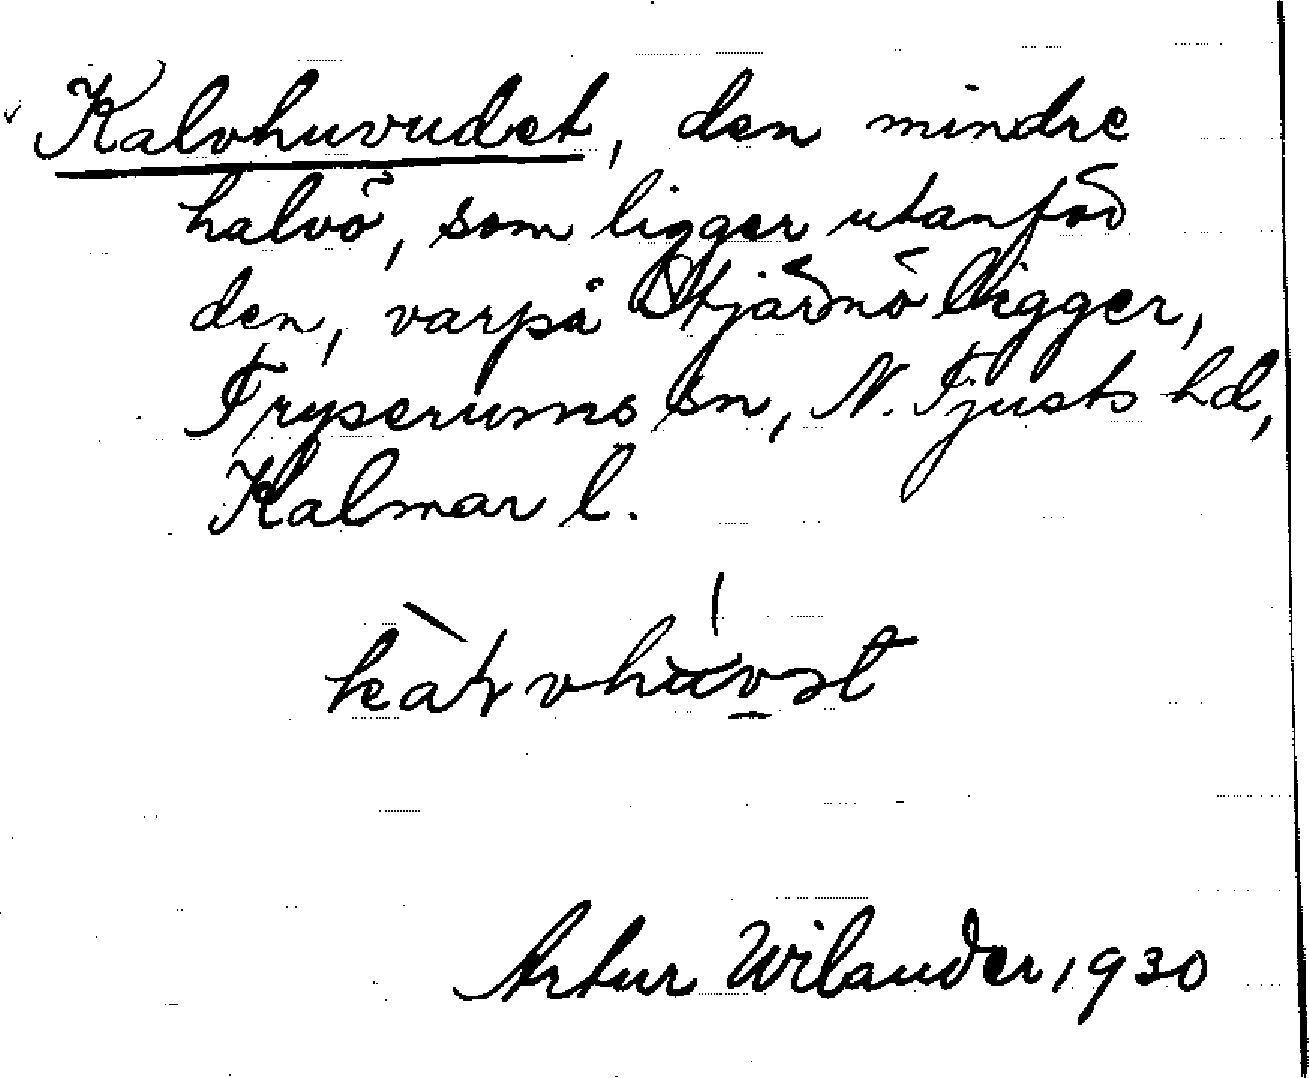 Kalvhuvudet, den mindre
halvö, som ligger utanför
den, varpå Stjärnö ligger,
Tryserums sn, N. Tjusts hd,
Kalmar l.
Artur Wilander 1930